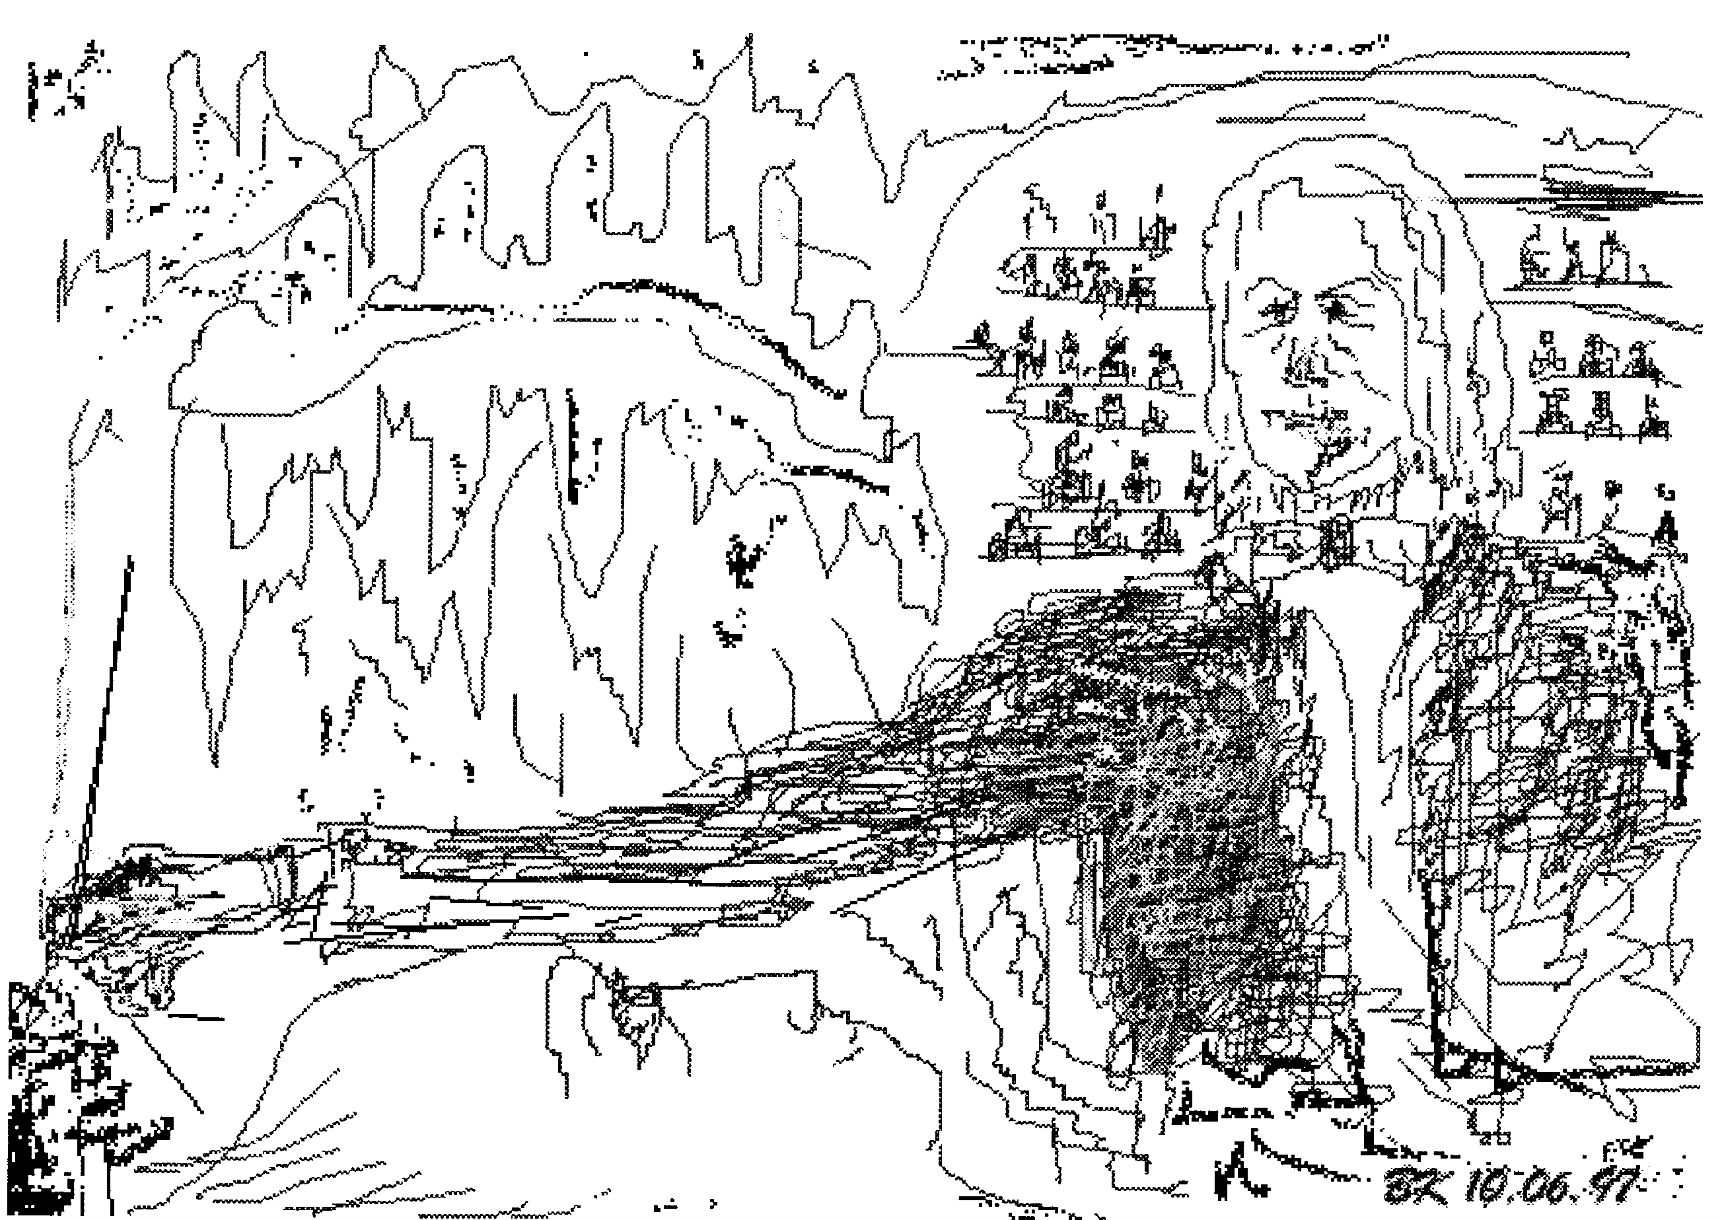 BK 10.06.97